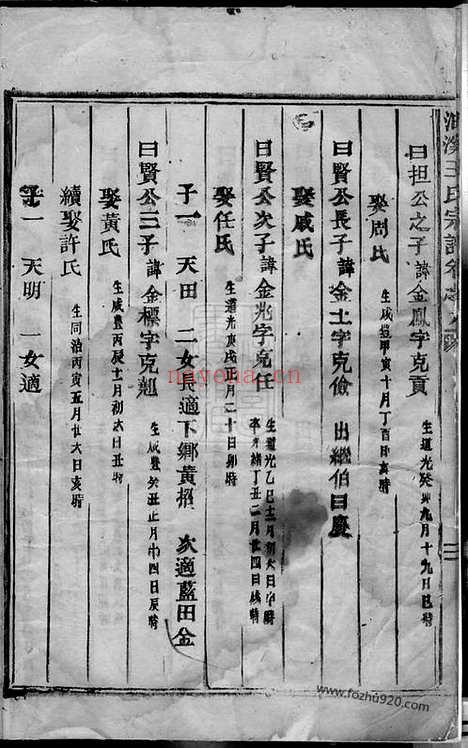 王氏宗譜卷之
曰担公之子諱金鳳字克貢 生道光癸卯九月十九日巳時
娶周氏 生咸豐甲寅十月丁酉日亥時
曰賢公長子諱金土字克儉 出繼伯曰慶
娶戚氏
曰賢公次子諱金兆字克任 生道光乙巳十二月初六日 時
卒光緒丁丑二月廿四日戌時
娶任氏 生道光庚戌正月二十日卯時
子一 天田 二女長適下鄉黄招 次適藍田金
曰賢公三子諱金標字克魁 生咸豐癸丑正月廿四日辰時
娶黄氏 生咸豐丙辰十二月初六日丑時
續娶許氏 生同治丙寅五月廿六日亥時
子一 天明 一女適
nayona.cn
www.fozhu920.com